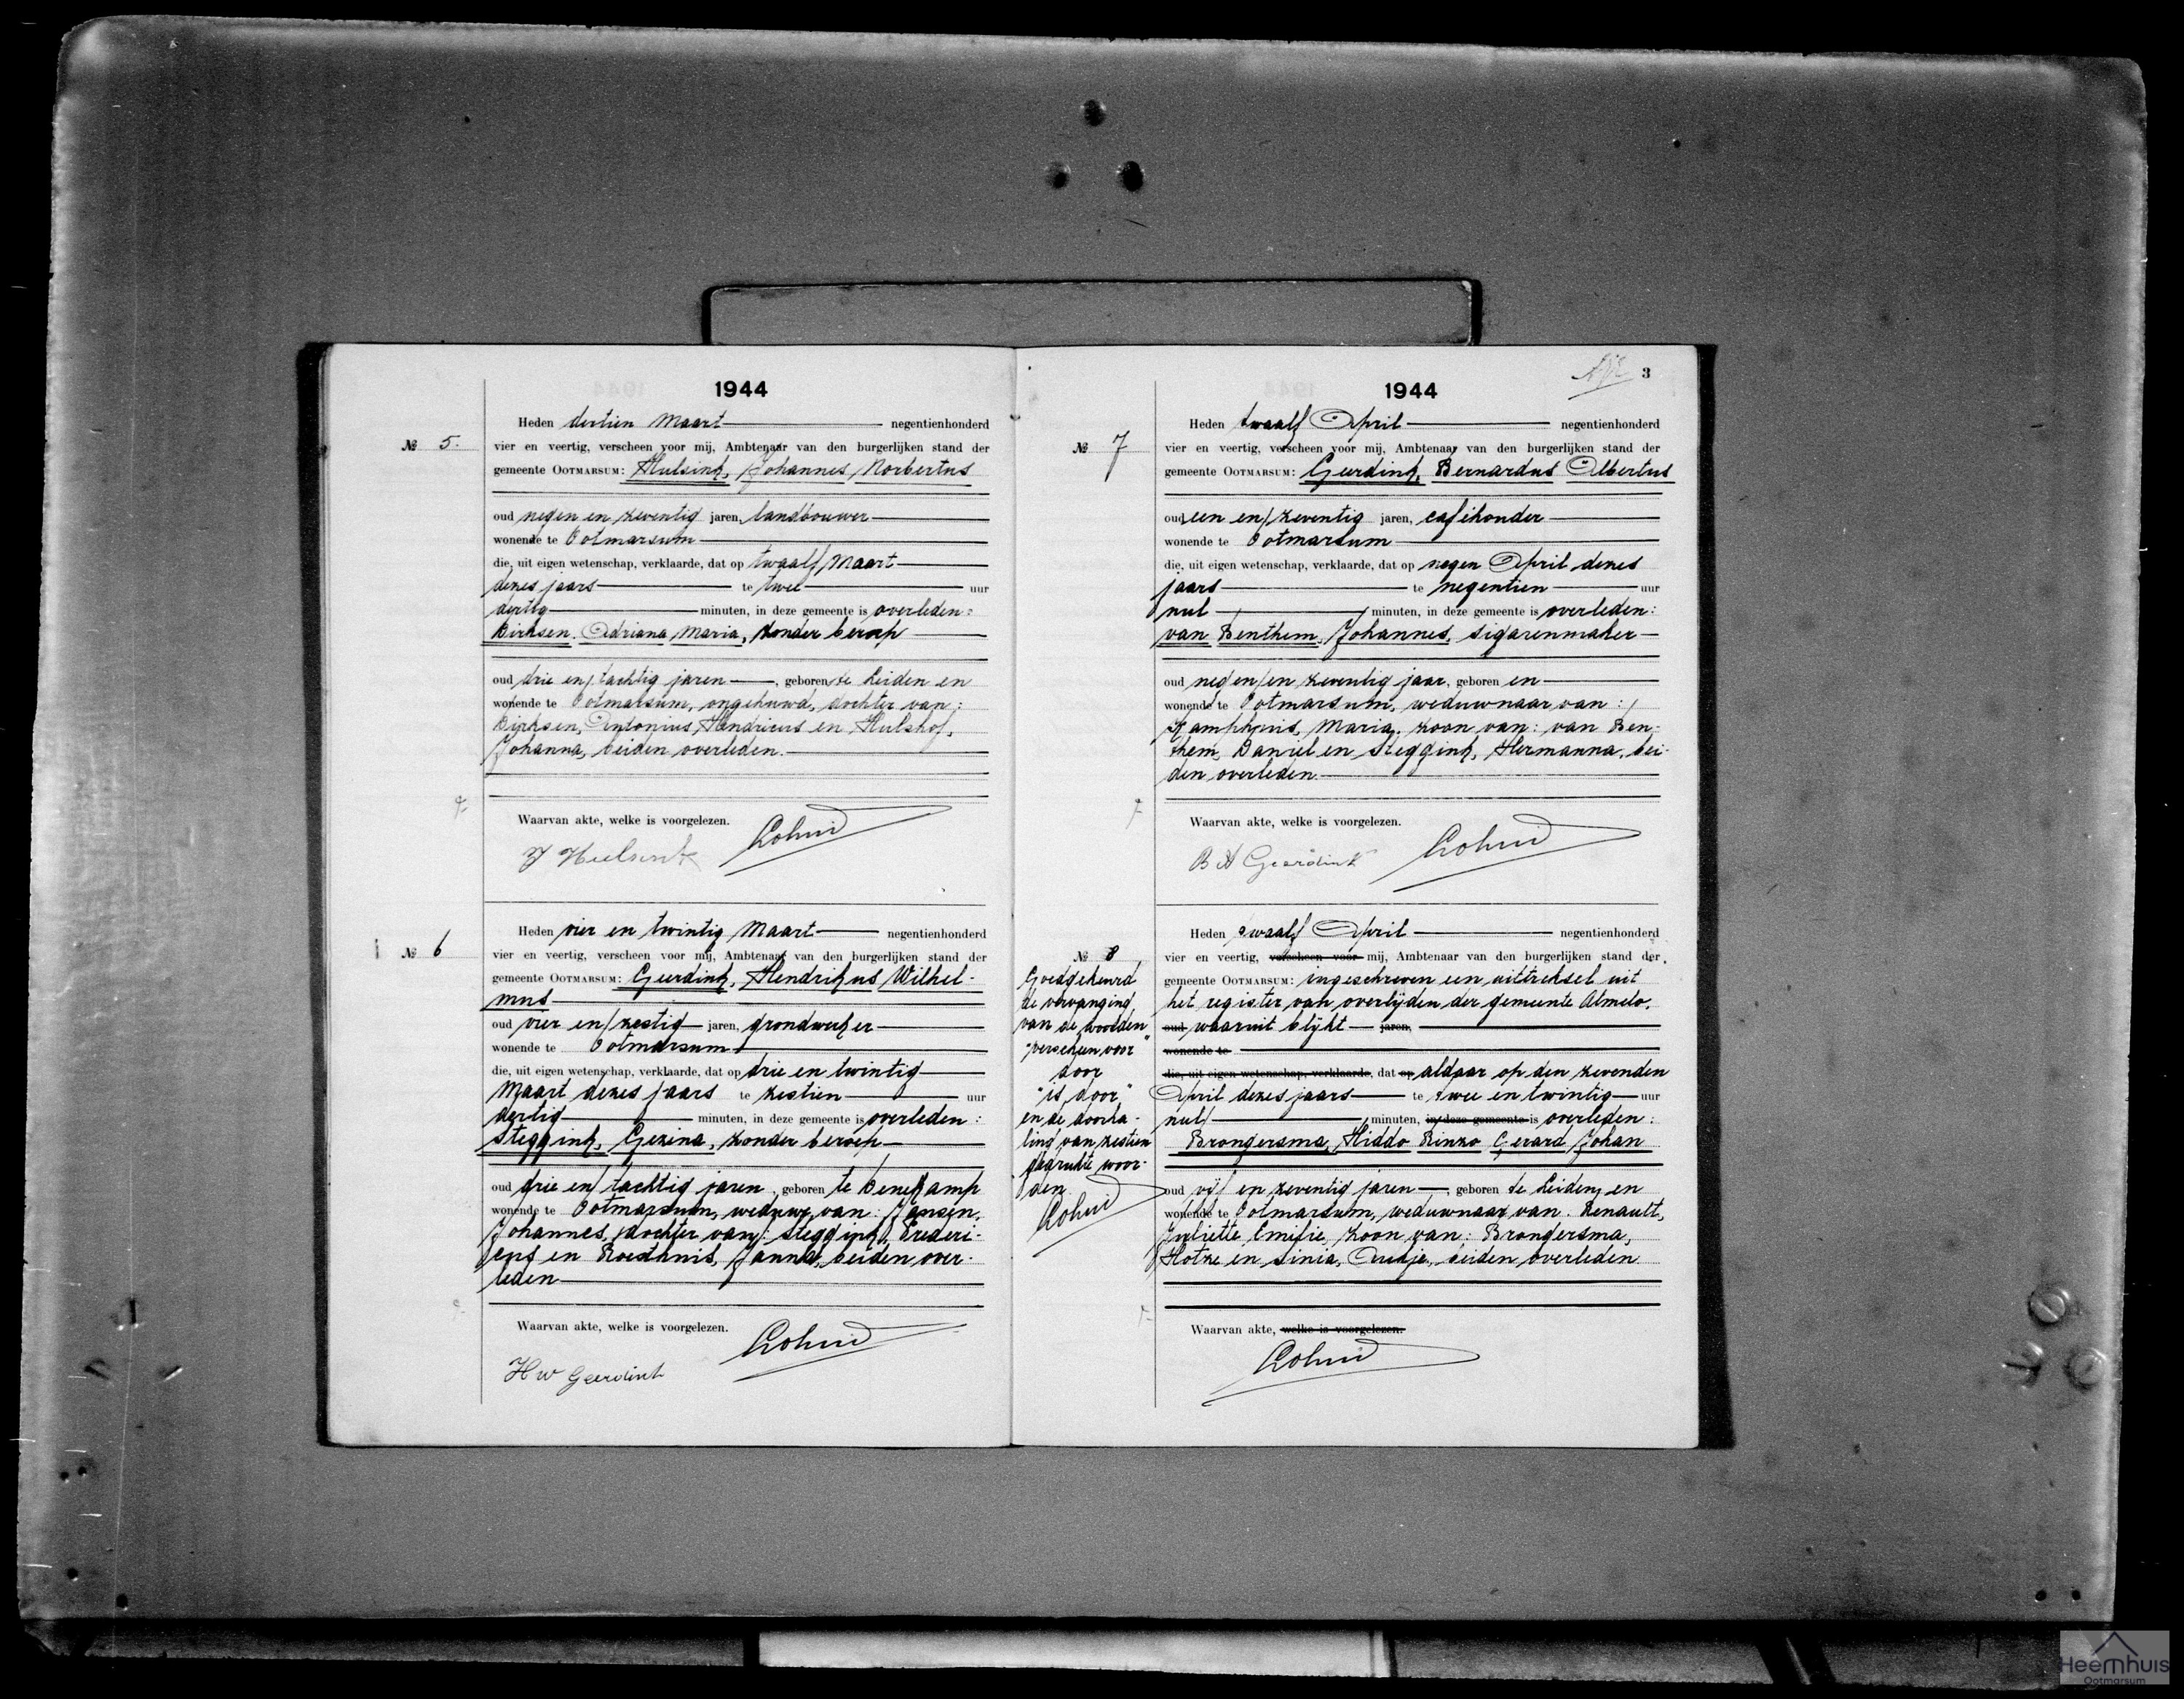 1944
Heden dertien Maart negentienhonderd
№ 5.
vier en veertig, verscheen voor mij, Ambtenaar van den burgerlijken stand der
gemeente Ootmarsum: Hulsink, Johannes Norbertus
oud negen en zeventig jaren, landbouwer
wonende te Ootmarsum
die, uit eigen wetenschap, verklaarde, dat op twaalf Maart
dezes jaars te twee uur
dertig minuten, in deze gemeente is overleden:
Dirksen, Adriana Maria, zonder beroep
oud drie en tachtig jaren, geboren te Leiden en
wonende te Ootmarsum, ongehuwd, dochter van:
Dirksen, Antonius Hendricus en Hulshof,
Johanna, beiden overleden.
Waarvan akte, welke is voorgelezen.
J Hulsink
Heden vier en twintig Maart negentienhonderd
№ 6
vier en veertig, verscheen voor mij, Ambtenaar van den burgerlijken stand der
gemeente Ootmarsum: Geerdink, Hendrikus Wilhel-
mus
oud vier en zestig jaren, grondwerker
wonende te Ootmarsum
die, uit eigen wetenschap, verklaarde, dat op drie en twintig
Maart dezes jaars te zestien uur
dertig minuten, in deze gemeente is overleden:
Steggink, Gezina, zonder beroep
oud drie en tachtig jaren, geboren te Denekamp
wonende te Ootmarsum, weduwe van: Jansen,
Johannes, dochter van: Steggink, Frederi-
cus en Janna, beiden over-
leden
Waarvan akte, welke is voorgelezen.
H W Geerdink
3
1944
Heden twaalf April negentienhonderd
№ 7
vier en veertig, verscheen voor mij, Ambtenaar van den burgerlijken stand der
gemeente Ootmarsum: Geerdink, Bernardus Albertus
oud een en zeventig jaren, caféhouder
wonende te Ootmarsum
die, uit eigen wetenschap, verklaarde, dat op negen April dezes
jaars te negentien uur
nul minuten, in deze gemeente is overleden:
van Benthem, Johannes, sigarenmaker
oud negen en zeventig jaar, geboren en
wonende te Ootmarsum, weduwnaar van:
Kamphuis, Maria, zoon van: van Ben-
them, Daniel en Steggink, Hermanna, bei-
den overleden.
Waarvan akte, welke is voorgelezen.
B A Geerdink
Heden twaalf April negentienhonderd
№ 8
vier en veertig, verscheen voor mij, Ambtenaar van den burgerlijken stand der
gemeente Ootmarsum: ingeschreven een uittreksel uit
het register van overlijden der gemeente Almelo,
oud waaruit blijkt jaren,
wonende te
die, uit eigen wetenschap, verklaarde, dat op aldaar op den zevenden
April dezes jaars te twee en twintig uur
nul minuten, in deze gemeente is overleden:
Brongersma, Hiddo Rinzo Gerard Johan
oud vijf en zeventig jaren, geboren te Leiden, en
wonende te Ootmarsum, weduwnaar van: Renault,
Juliette Emilie, zoon van: Brongersma,
Hotze en Sinia, Aukje, beiden overleden.
Goedgekeurd
de vervanging
van de woorden
"verscheen voor"
door
"is door"
en de doorha-
ling van zestien
gedrukte woor-
den
Waarvan akte, welke is voorgelezen.
Heemhuis
Ootmarsum